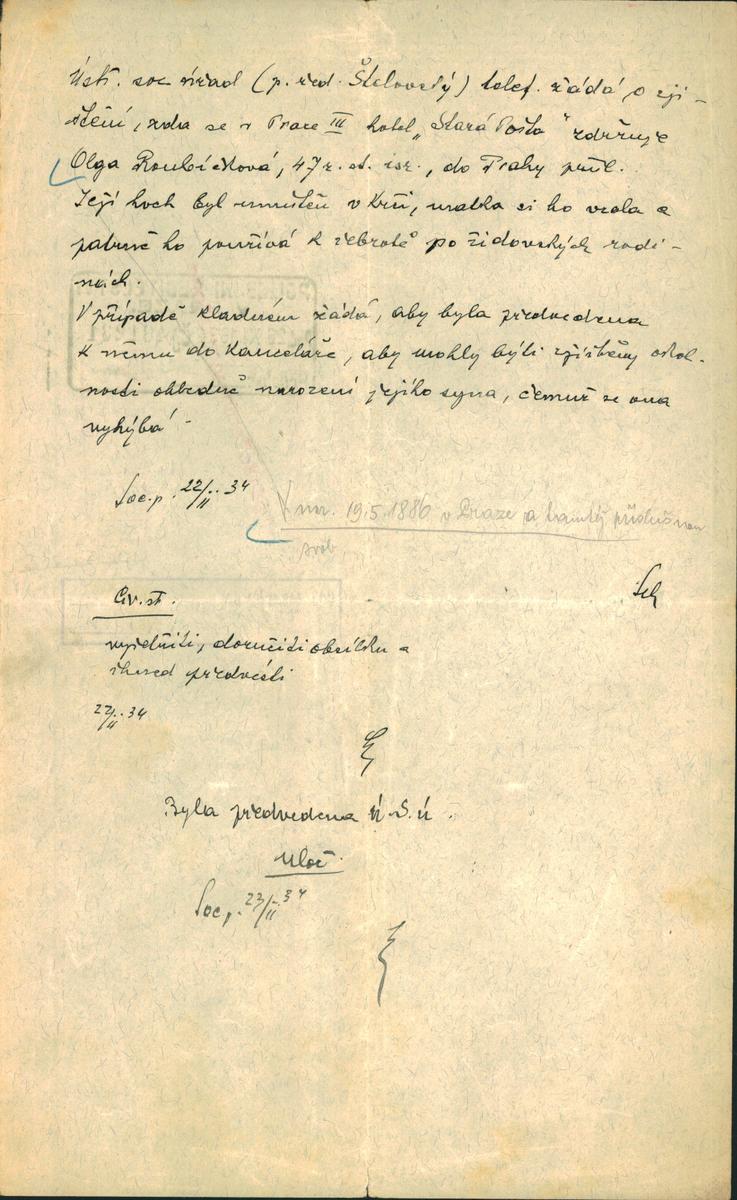 Úst. soc. úřad (p. řed. Štelovský) telef. žádá o zji-
štění, zda se v Praze III hotel „Stará Pošta“ zdržuje
Olga Roubíčková, 47 r. st. isr., do Prahy přísl.
Její hoch byl umístěn v Krči, matka si ho vzala a
patrně ho používá k žebrotě po židovských rodi-
nách.
V případě kladném žádá, aby byla předvedena
k němu do kanceláře, aby mohly býti zjištěny okol-
nosti ohledně narození jejího syna, čemuž se ona
vyhýbá! -
Soc. p. 22/II. 34
nar. 19.5.1886 v Praze a tamtéž příslušnou
svob.
Sch
Civ. st.
vyšetřiti, doručiti obsílku a
ihned předvésti
22/II. 34
Byla předvedena Ú.S.Ú.
Ulož.
Soc. p. 23/II. 34